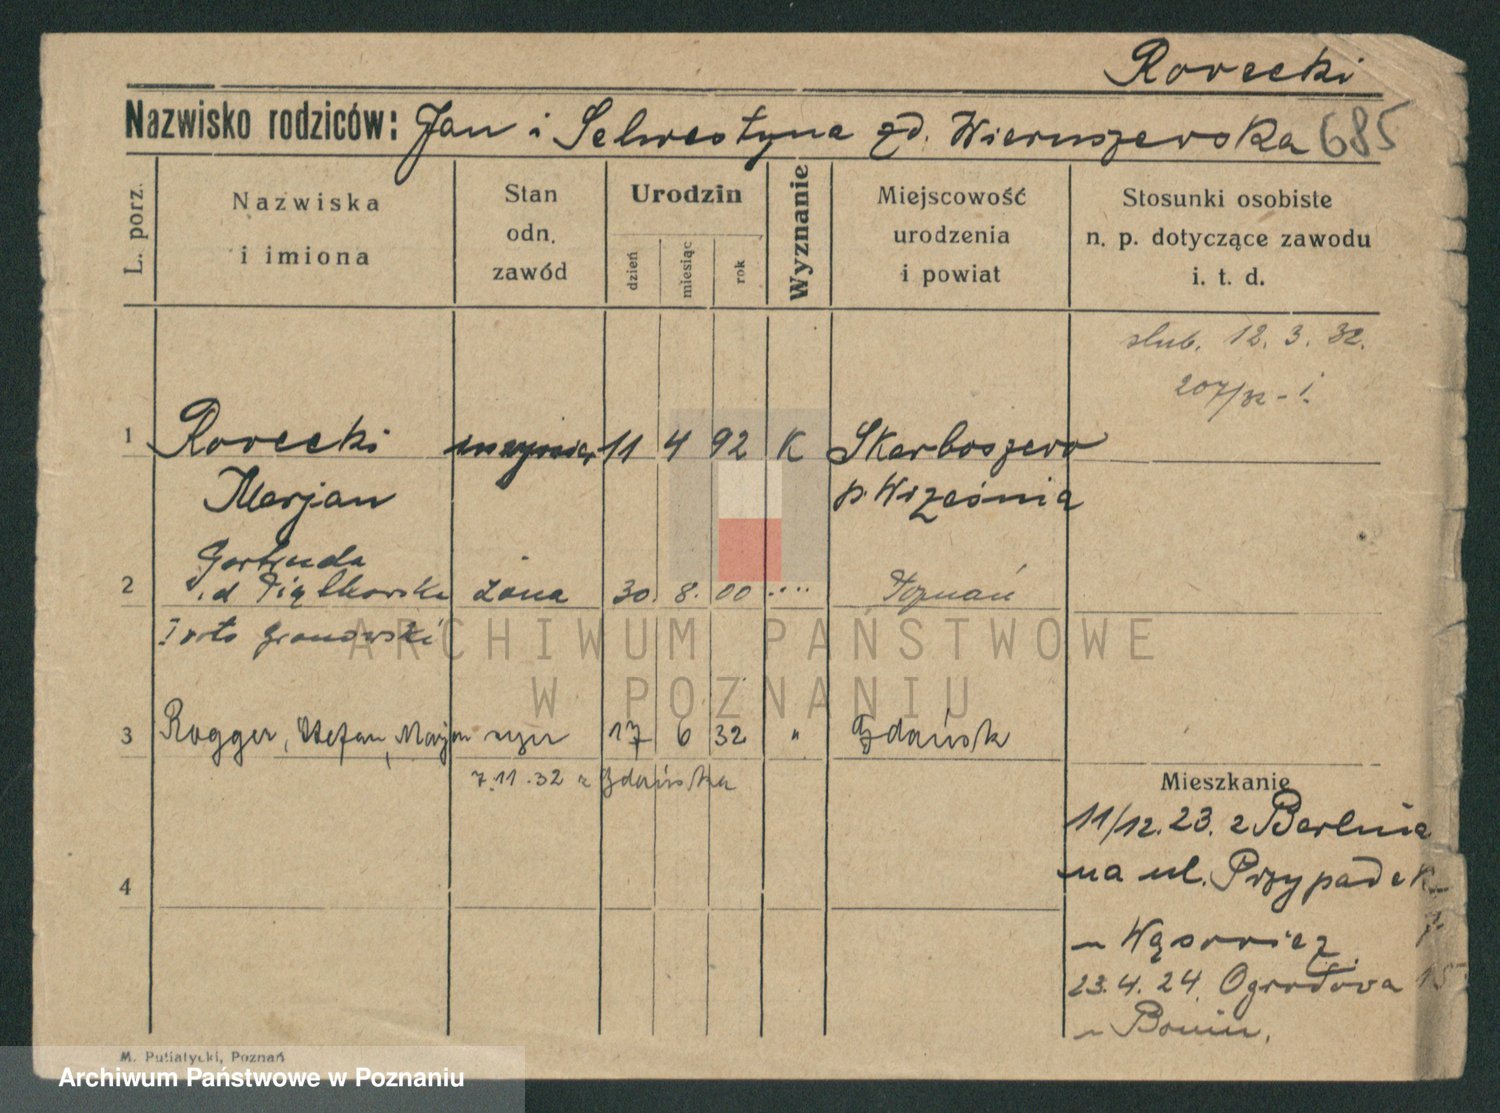 Rorecki
Nazwisko rodziców: Jan i Selwestyna zd. Wieruszewska 685
L. porz.
Nazwiska
i imiona
Stan
odn.
zawód
Urodzin
dzień
miesiąc
rok
Wyznanie
Miejscowość
urodzenia
i powiat
Stosunki osobiste
n. p. dotyczące zawodu
i. t. d.
slub. 12. 3. 32.
207/32 - I.
1 Rorecki 11 4 92 K Skarboszewo
Merjan p. Września
Gertruda
2 żona 30. 8. 00 Poznań
I voto Gronowski
ARCHIWUM PAŃSTWOWE
W POZNANIU
3 Rogger, Stefan, Marjan syn 17 6 32 " Gdańsk
7.11.32 z Gdańska
Mieszkanie
11/12. 23. z Berlina
na ul. Przypadek
4
7.
u Wąsowicz
23. 4. 24 Ogrodowa 15
u
M. Putiatycki, Poznań
Archiwum Państwowe w Poznaniu